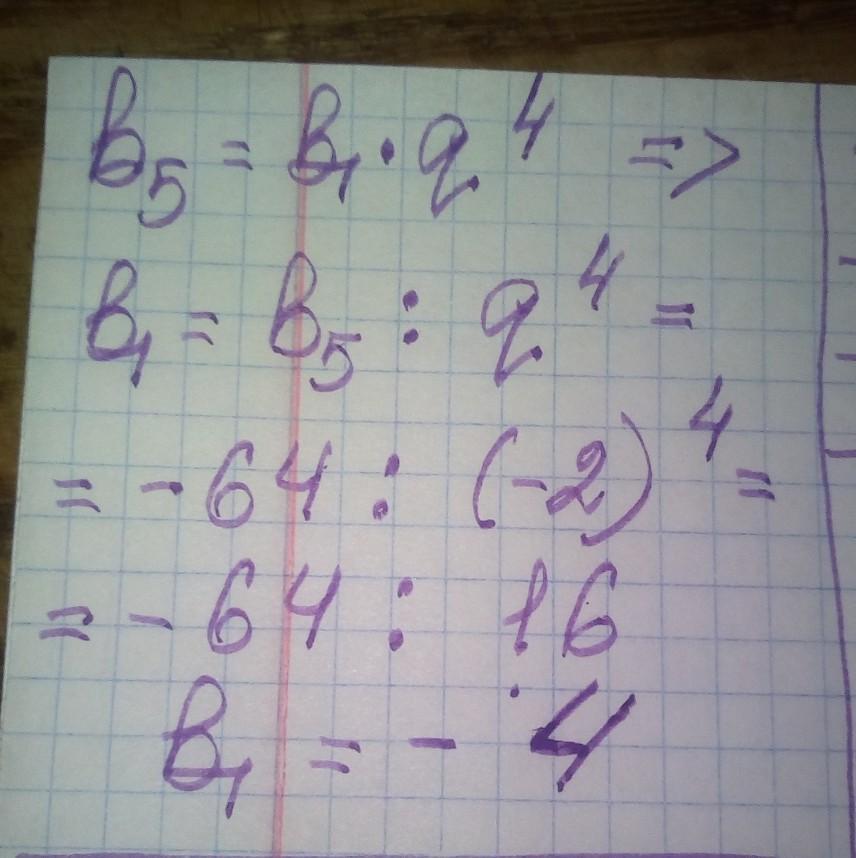 b₅ = b₁ · q⁴ =>
b₁ = b₅ : q⁴ =
= - 64 : (-2)⁴ =
= - 64 : 16
b₁ = - 4